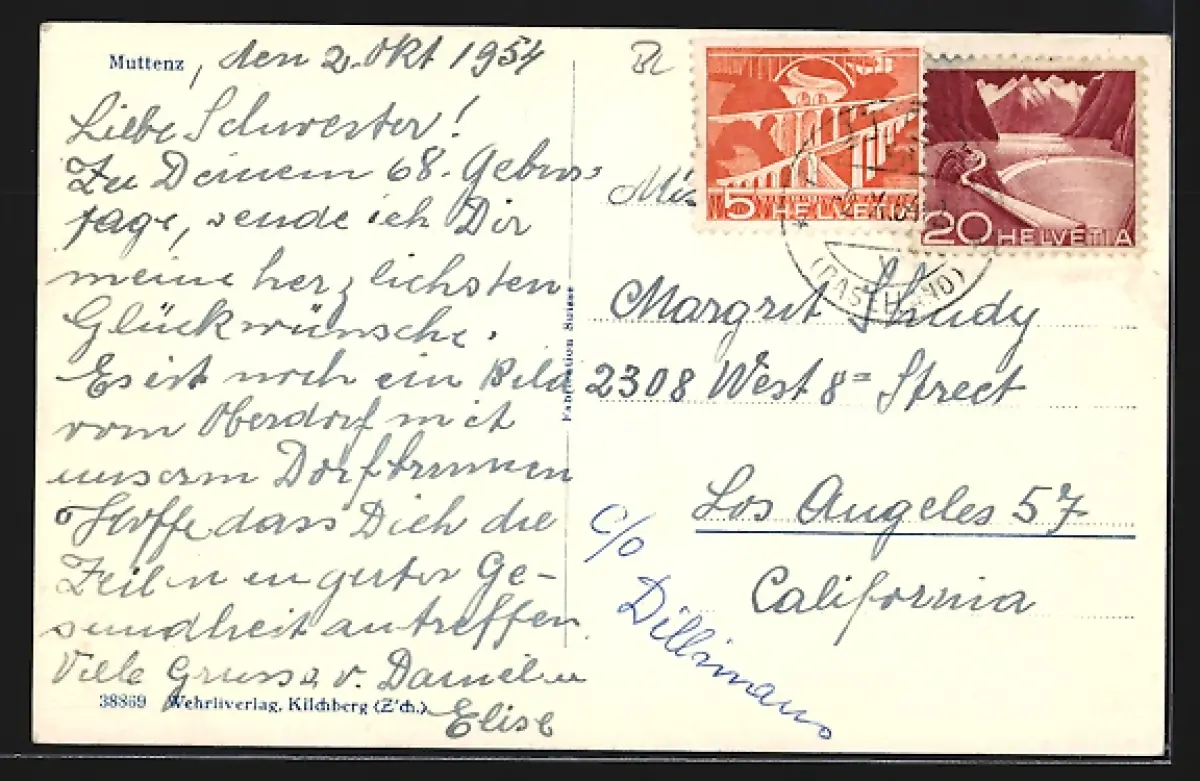 Muttenz, den 2. Okt 1954
Liebe Schwester!
Zu Deinem 68. Geburs
tage, sende ich Dir
meine herzlichsten
Glückwünsche.
Es ist noch ein Bild
vom Oberdorf mit
unserm Dorfbrunnen
Hoffe dass Dich die
Zeilen in guter Ge-
sundheit antreffen
Viele Grüsse v. Daniel u
Elise
38869 Wehrliverlag, Kilchberg (Z'ch.)
Fabrication Suisse
5 HELVETIA
20 HELVETIA
(BASELLAND)
Margrit
2308 West 8= Street
Los Angeles 57
California
c/o